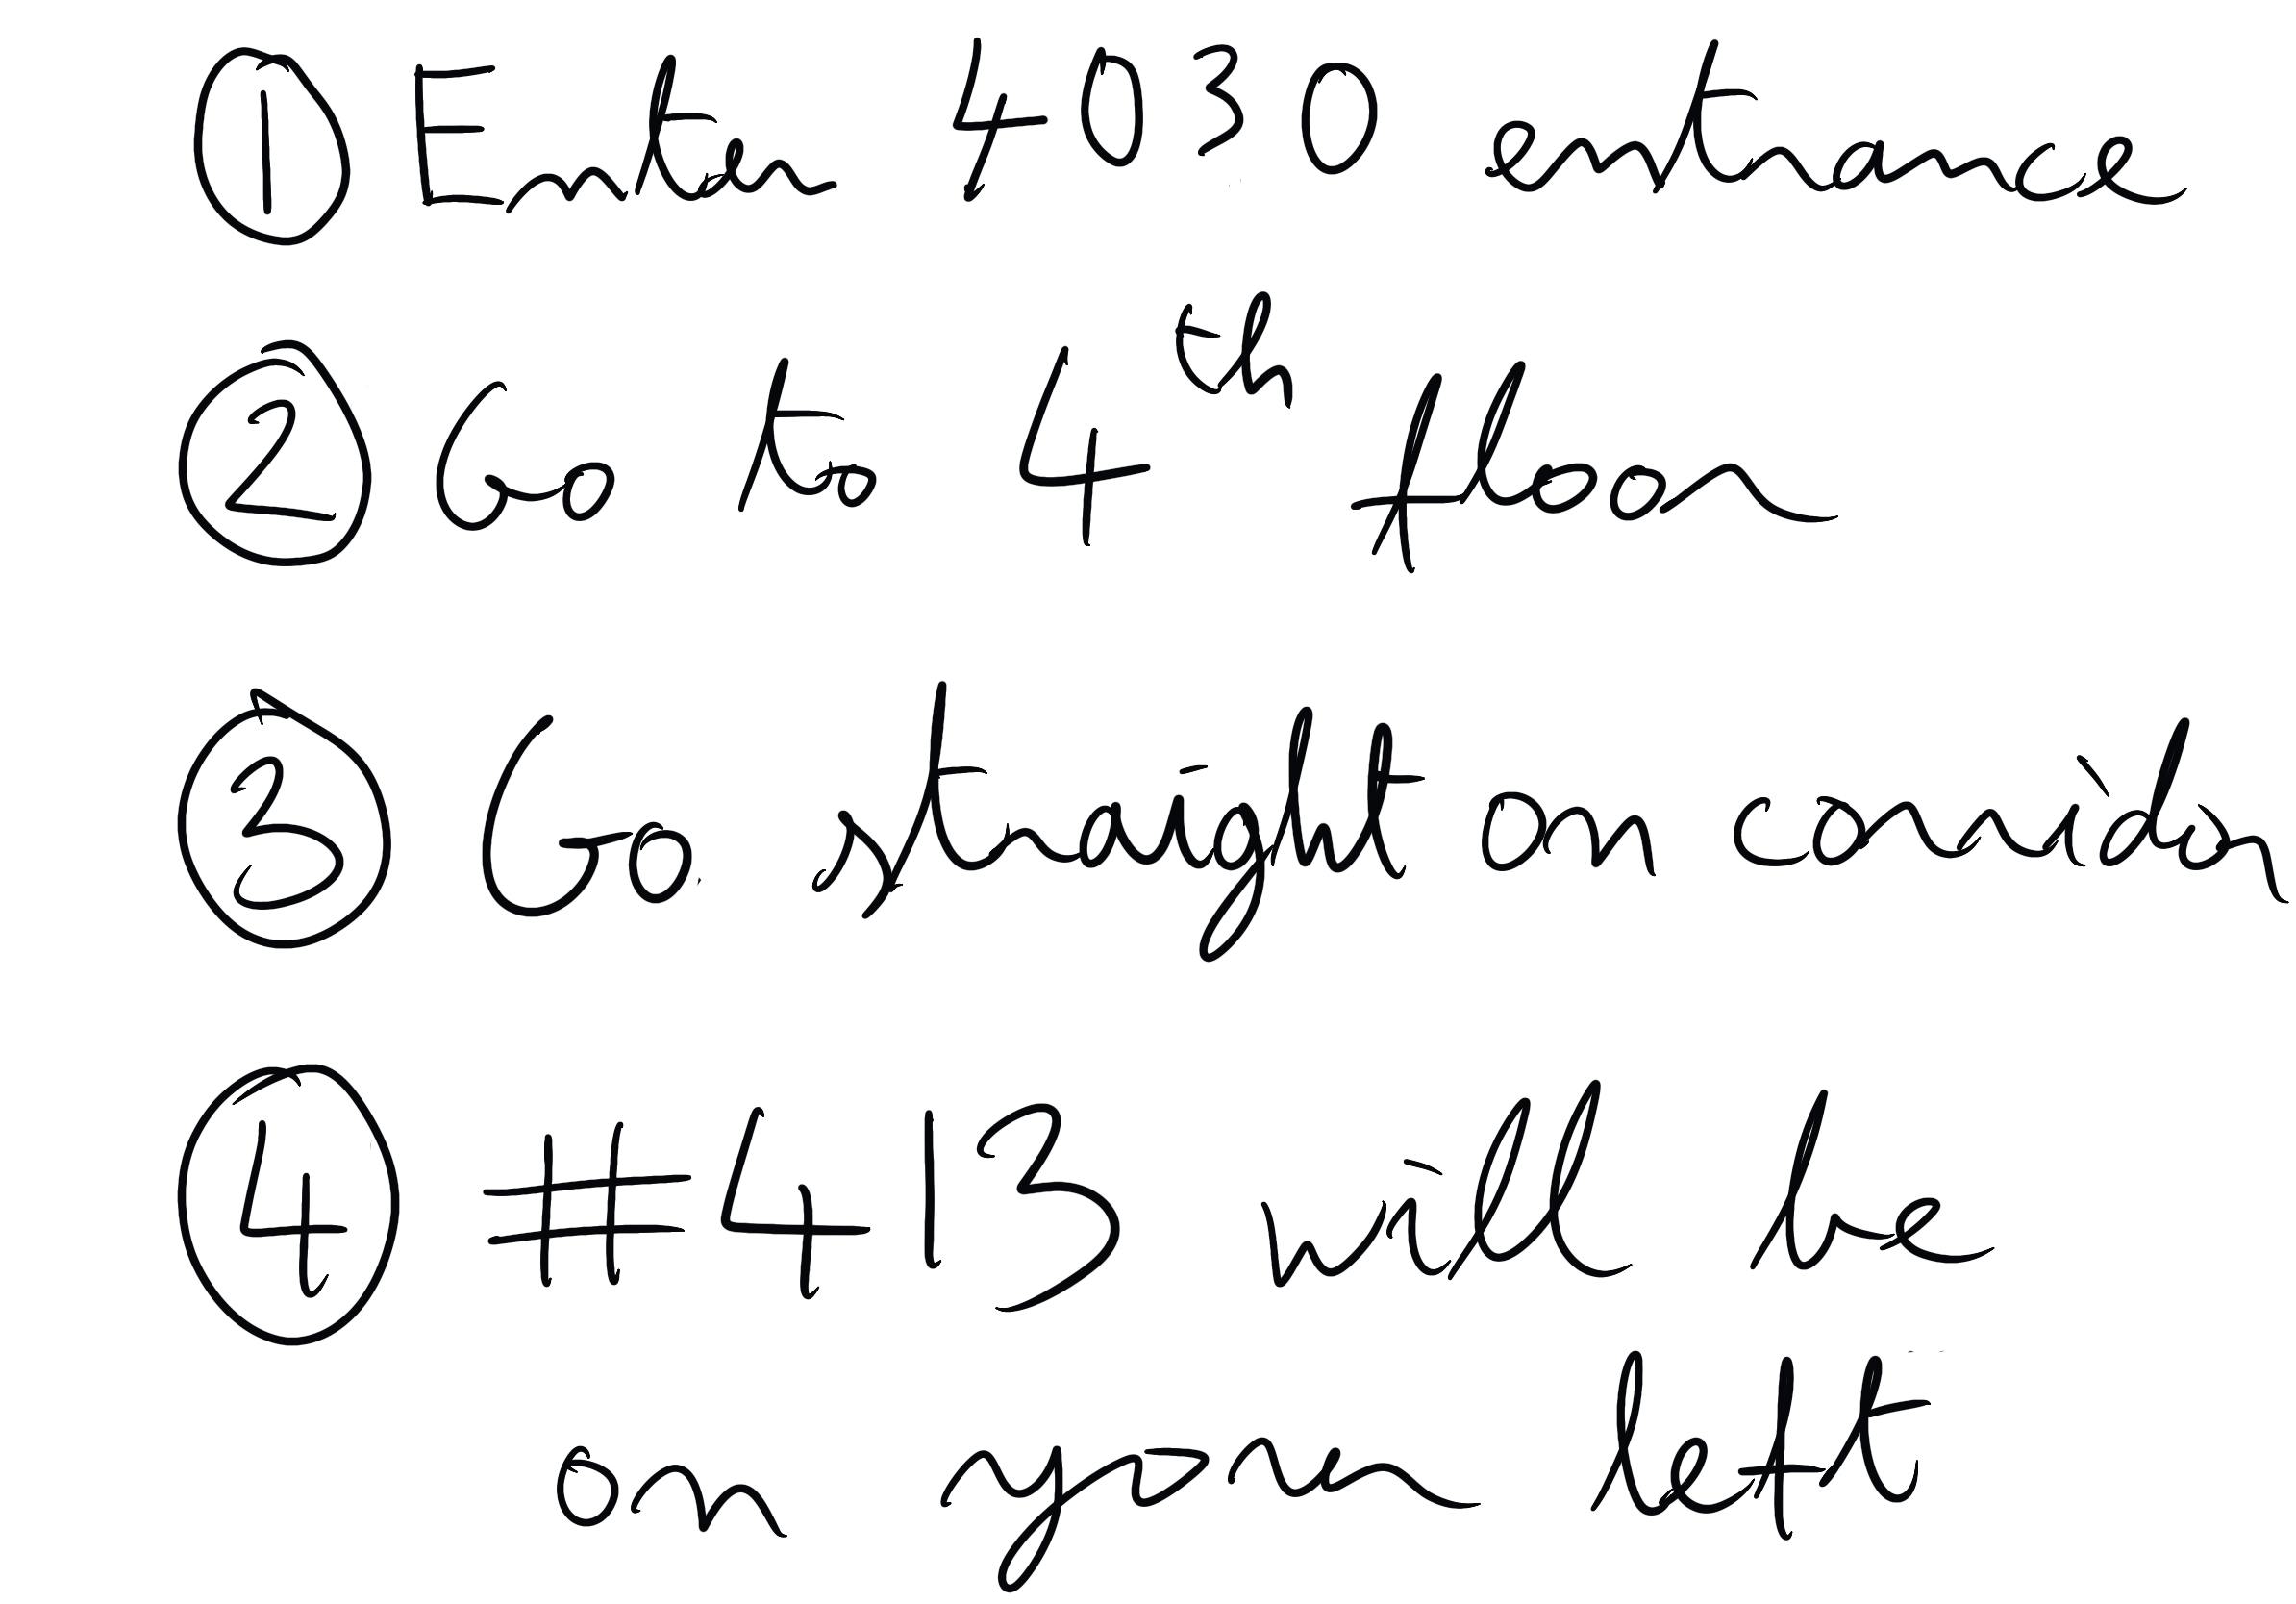 ① Enter 4030 entrance
② Go to 4th floor
③ Go straight on corridor
④ #413 will be
on your left